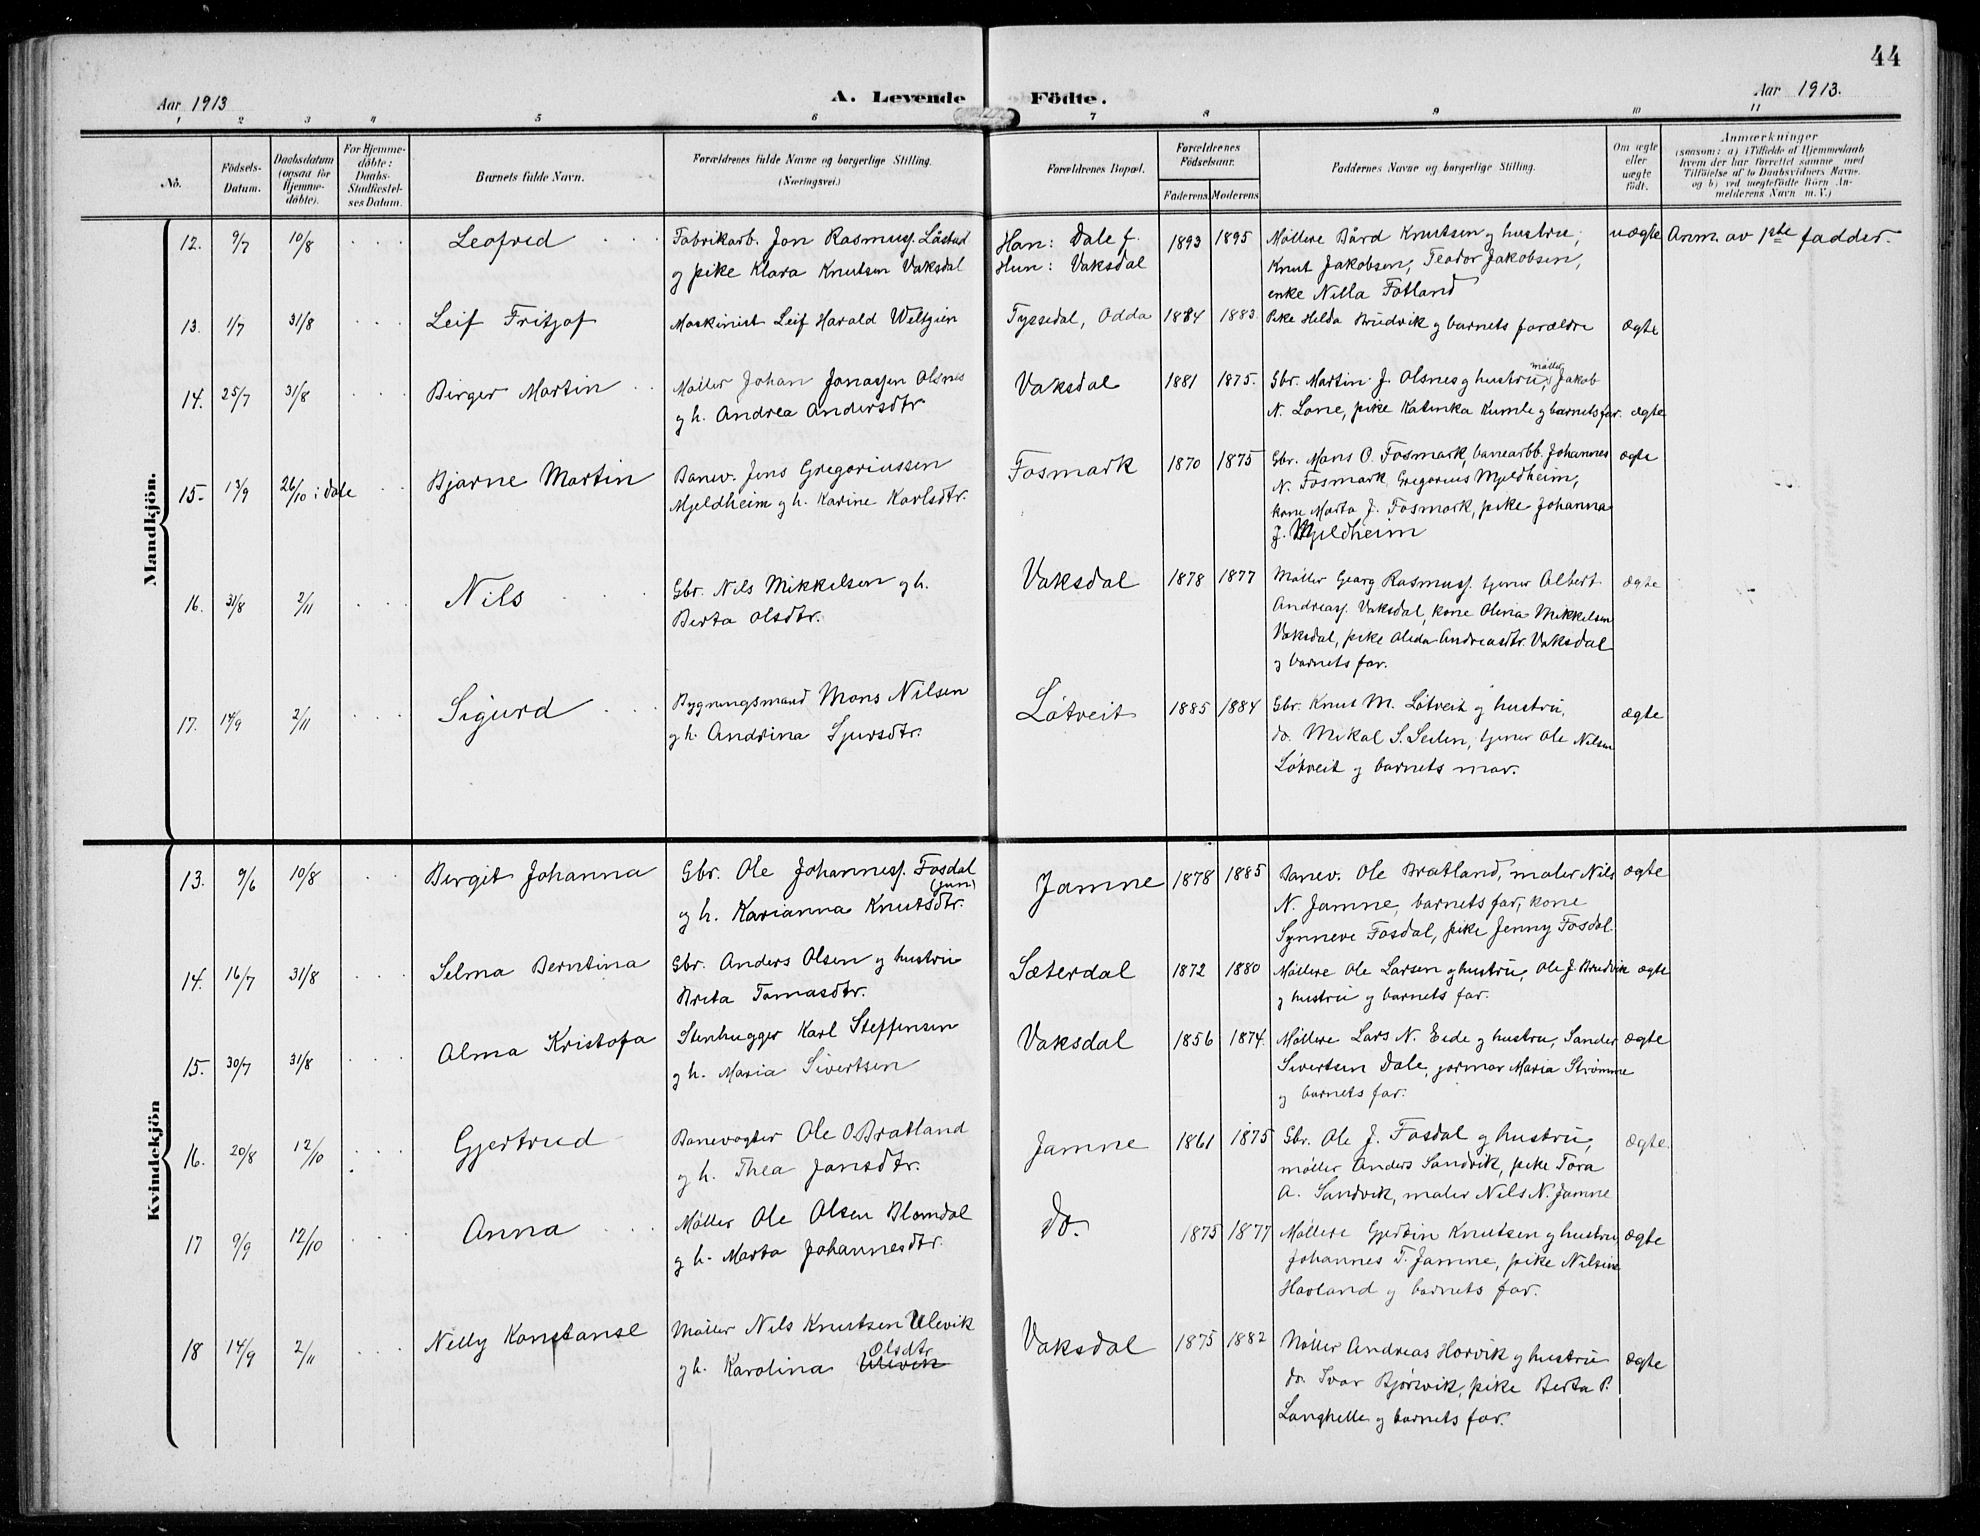 44
Aar 1913
A. Levende Födte.
Aar 1913.
1 2 3 4 5 6 7 8 9 10 11
No.
Födsels-
Datum.
Daabsdatum
(ogsaa for
Hjemme-
döbte).
For Hjemme-
döbte:
Daabs-
Stadfæstel-
ses Datum.
Barnets fulde Navn.
Forældrenes fulde Navne og borgerlige Stilling.
(Næringsvei.)
Forældrenes Bopæl.
Forældrenes
Födselsaar.
Faderens. Moderens
Faddernes Navne og borgerlige Stilling.
Om ægte
eller
uægte
födt.
Anmærkninger
(saasom: a) i Tilfælde af Hjemmedaab
hvem der har forrettet samme, med
Tilföielse af to Daabsvidners Navne.
og b) ved uegtefödte Börn An-
melderens Navn m. V.)
Mandkjön.
12. 9/7 10/8 Leofred
Fabrikarb. Jon Rasmuss. Låstad
og pike Klara Knutsen Vaksdal
Han: Dale f.
Hun: Vaksdal
1893 1895
Møllere Bård Knutsen g hustru,
Knut Jakobsen, Teodor Jakobsen,
enke Nilla Fotland
uægte
Anm. av 1ste fadder.
13. 1/7 31/8 Leif Fritjof
Maskinist Leif Harald Weltzien
Tyssedal, Odda 1884 1883.
Pike Helda Brudvik g barnets forældre
ægte
14. 25/7 31/8 Birger Martin
Møller Johan Jonassen Olsnes
g h. Andrea Andersdtr
Vaksdal 1881 1875.
Gbr. Martin J. Olsnes g hustru, møller Jakob
N. Lone, pike Katinka Kumle g barnets far.
ægte
15. 13/9 26/10 i Dale Bjarne Martin
Banev. Jens Gregoriussen
Mjeldheim g h. Karine Karlsdtr.
Fosmark 1870 1875
Gbr. Mons O. Fosmark, banearbb. Johannes
N. Fosmark, Gregorius Mjeldheim,
kone Marta J. Fosmark, pike Johanna
J. Mjeldheim
ægte
16. 31/8 2/11 Nils
Gbr. Nils Mikkelsen g h.
Berta Olsdtr.
Vaksdal 1878 1877
Møller Georg Rasmuss. tjener Albert
Andreass. Vaksdal, kone Olina Mikkelsen
Vaksdal, pike Alida Andreasdtr. Vaksdal
g barnets far.
ægte
17. 14/9 2/11 Sigurd
Bygningsmand Mons Nilsen
g h. Andrina Sjursdtr.
Løtveit 1885 1884
Gbr. Knut M. Løtveit g hustru,
do. Mikal S. Seilen, tjener Ole Nilsen
Løtveit g barnets mor.
ægte
Kvindekjön
13. 9/6 10/8 Birgit Johanna
Gbr. Ole Johanness. Fosdal
(jun)
g h. Karianna Knutsdtr.
Jamne 1878 1885
Banev. Ole Bratland, maler Nils
N. Jamne, barnets far, kone
Synneve Fosdal, pike Jenny Fosdal
ægte
14. 16/7 31/8 Selma Berntina
Gbr. Anders Olsen g hustru
Brita Tomasdtr.
Sæterdal 1872 1880
Møllere Ole Larsen g hustru, Ole J. Brudvik
g hustru g barnets far.
ægte
15. 30/7 31/8 Alma Kristofa
Stenhugger Karl Steffensen
g h. Maria Sivertsen
Vaksdal 1856 1874.
Møllere Lars N. Eide g hustru, Sander
Sivertsen Dale, jormor Maria Strømme
g barnets far.
ægte
16. 20/8 12/10 Gjertrud
Banevogter Ole O. Bratland
g h. Thea Jonsdtr.
Jamne 1861 1875
Gbr. Ole J. Fosdal g hustru,
møller Anders Sandvik, pike Tora
A. Sandvik, maler Nils N. Jamne
ægte.
17 9/9 12/10 Anna
Møller Ole Olsen Blomdal
g h. Marta Johannesdtr.
do. 1875 1877
Møllere Gjertin Knutsen g hustru
Johannes T. Jamne, pike Nilsine
Havland g barnets far.
ægte
18 14/9 2/11 Nelly Konstanse
Møller Nils Knutsen Ulevik
g h. Karolina Ulivik Olsdtr
Vaksdal 1875 1882
Møller Andreas Horvik g hustru
do. Ivar Bjørsvik, pike Berta P.
Langhelle g barnets far.
ægte